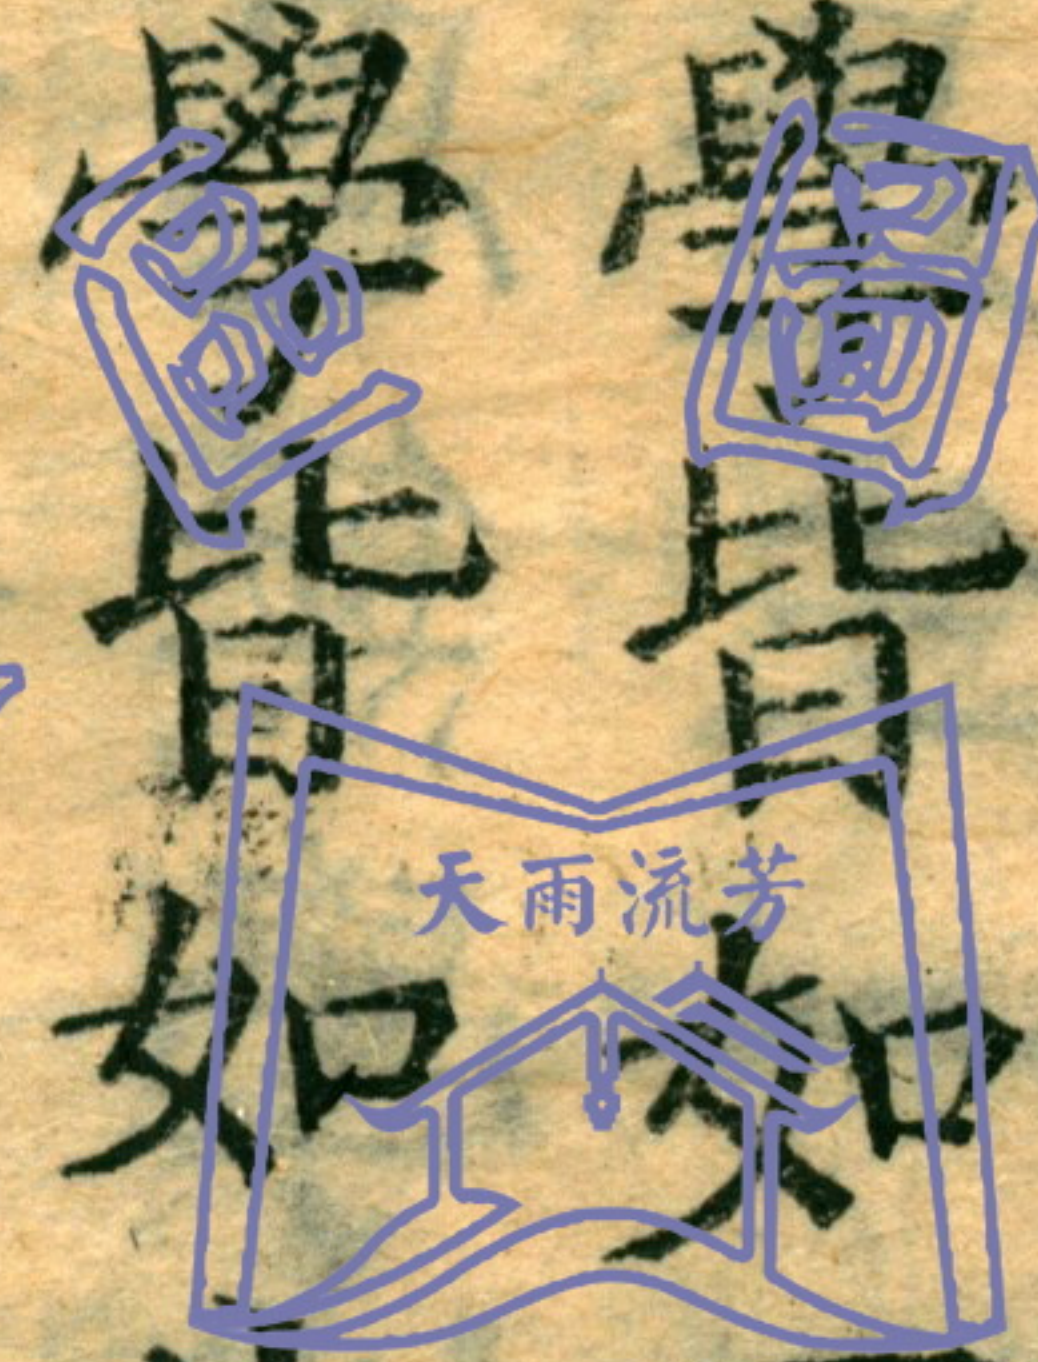 學皆如
學皆如
區圖
天雨流芳